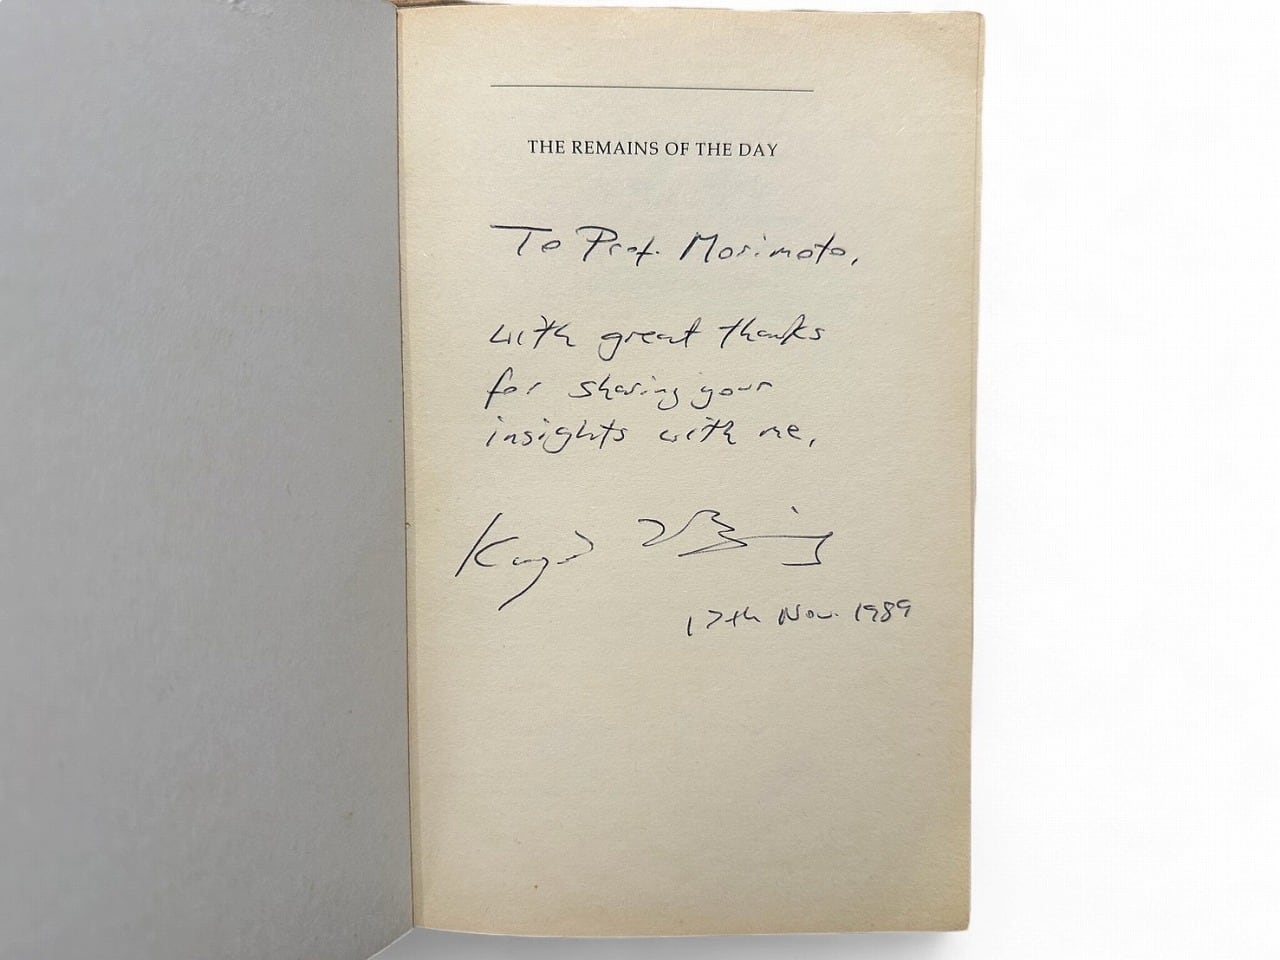 THE REMAINS OF THE DAY
To Prof. Morimoto,
with great thanks
for sharing your
insights with me,
Kazuo Ishiguro
17th Nov. 1989